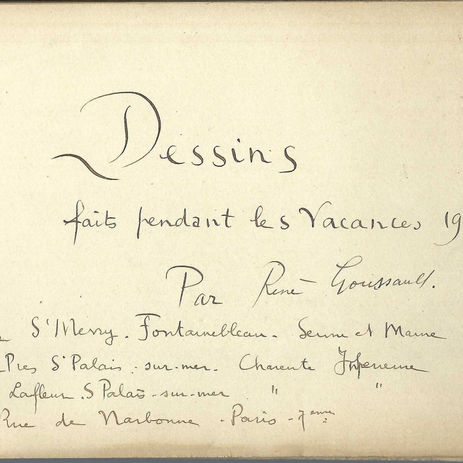 Dessins
faits pendant les Vacances 19
Par René Goussault.
S'Merry. Fontainebleau. Seine et Marne
Pres S'Palais. sur-mer. Charente Inferieure
Lafleur. S Palais-sur-mer " "
Rue de Narbonne - Paris - 7eme